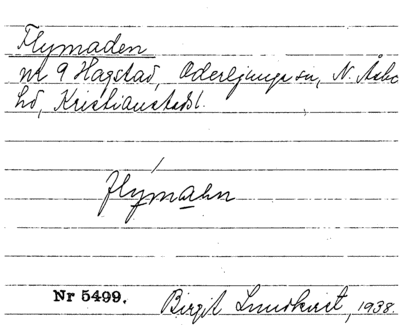 Flymaden
nr 9 Hagstad, Oderljunga sn, N. Åsbo
hd, Kristianstads l.
flýmahn
Nr 5499.
Birgit Lundkvist, 1938.